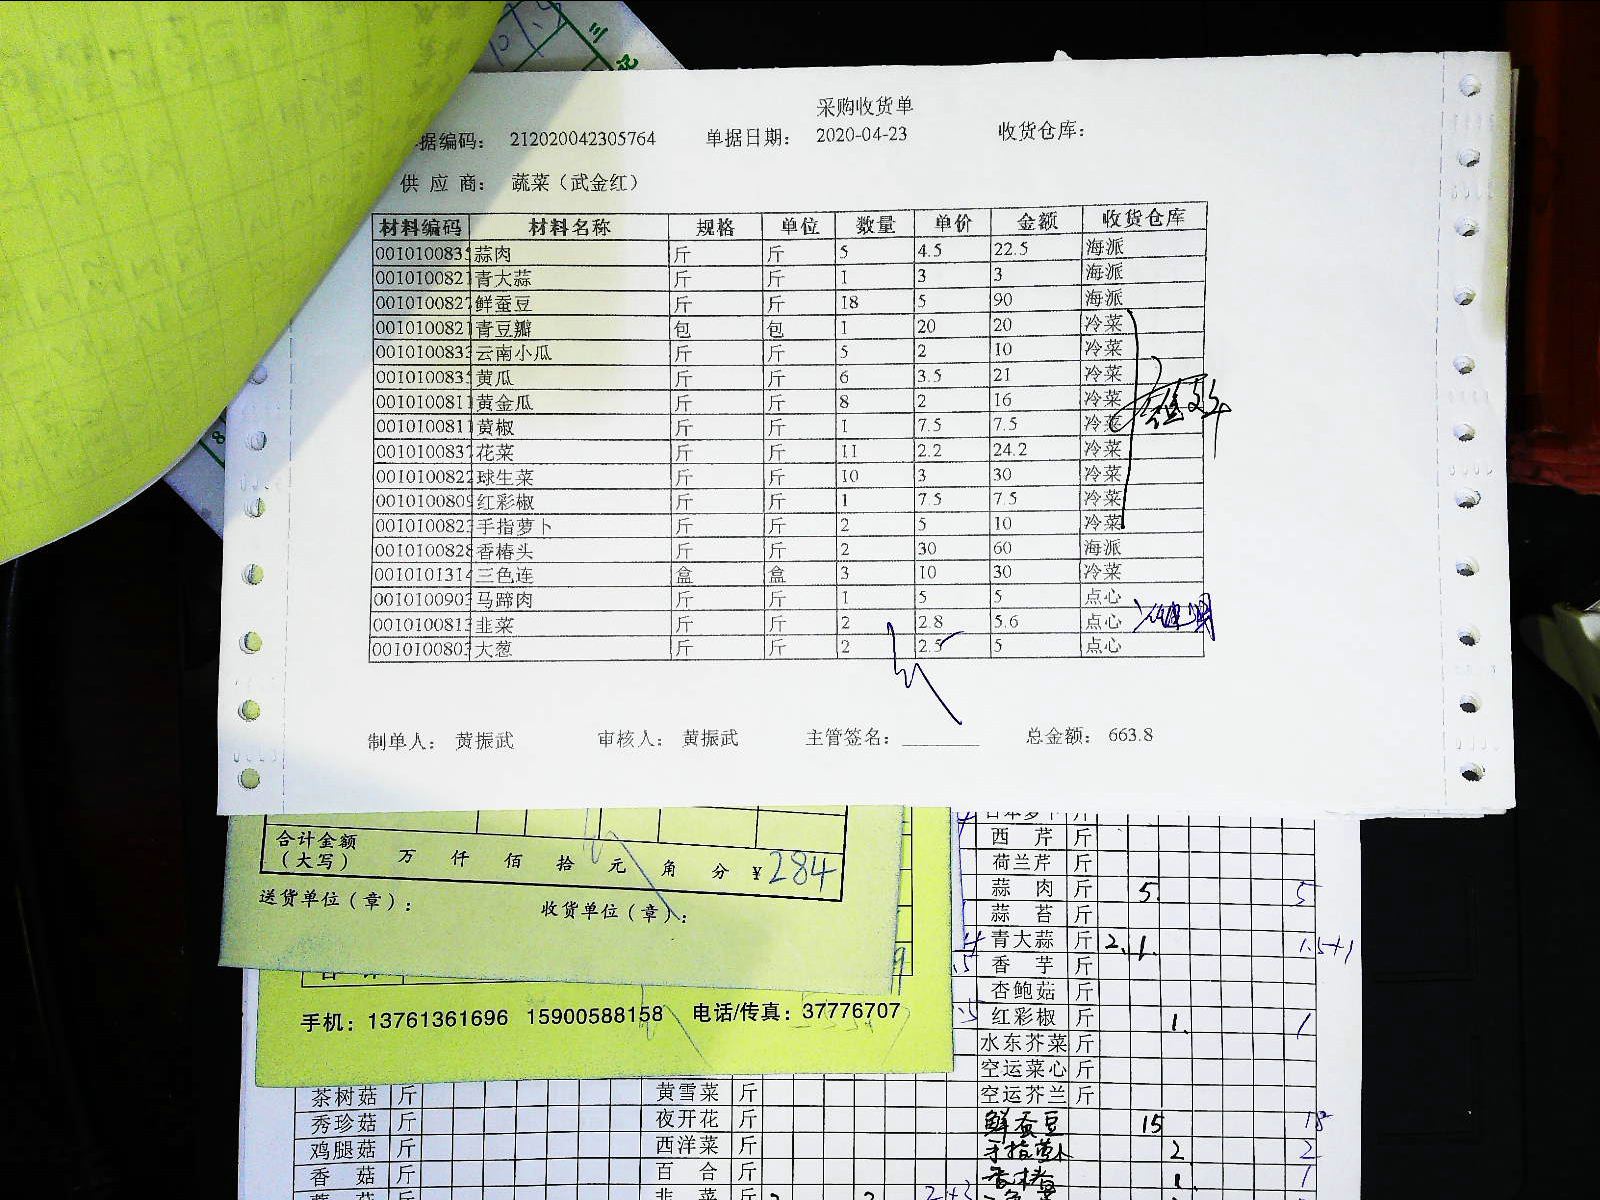 采购收货单
据编码： 212020042305764 单据日期： 2020-04-23 收货仓库：
供 应 商： 蔬菜（武金红）
材料编码 材料名称 规格 单位 数量 单价 金额 收货仓库
001010083 蒜肉 斤 斤 5 4.5 22.5 海派
001010082 青大蒜 斤 斤 1 3 3 海派
001010082 鲜蚕豆 斤 斤 18 5 90 海派
001010082 青豆瓣 包 包 1 20 20 冷菜
001010083 云南小瓜 斤 斤 5 2 10 冷菜
001010083 黄瓜 斤 斤 6 3.5 21 冷菜
001010081 黄金瓜 斤 斤 8 2 16 冷菜
001010081 黄椒 斤 斤 1 7.5 7.5 冷菜
001010083 花菜 斤 斤 11 2.2 24.2 冷菜
001010082 球生菜 斤 斤 10 3 30 冷菜
001010080 红彩椒 斤 斤 1 7.5 7.5 冷菜
001010082 手指萝卜 斤 斤 2 5 10 冷菜
001010082 香椿头 斤 斤 2 30 60 海派
001010131 三色连 盒 盒 3 10 30 冷菜
001010090 马蹄肉 斤 斤 1 5 5 点心
001010081 韭菜 斤 斤 2 2.8 5.6 点心
001010080 大葱 斤 斤 2 2.5 5 点心
制单人： 黄振武 审核人： 黄振武 主管签名： 总金额： 663.8
合计金额
（大写） 万 仟 佰 拾 元 角 分 ¥284
送货单位（章）： 收货单位（章）：
手机：13761361696 15900588158 电话/传真：37776707
西 芹 斤
荷兰芹 斤
蒜 肉 斤 5 5
蒜 苔 斤
青大蒜 斤 2. 1. 1.5+1
香 芋 斤
杏鲍菇 斤
红彩椒 斤 1. 1
水东芥菜 斤
空运菜心 斤
茶树菇 斤 黄雪菜 斤 空运芥兰 斤
秀珍菇 斤 夜开花 斤 鲜蚕豆 15 18
鸡腿菇 斤 西洋菜 斤 手指萝卜 2 2
香 菇 斤 百 合 斤 香椿 1 1